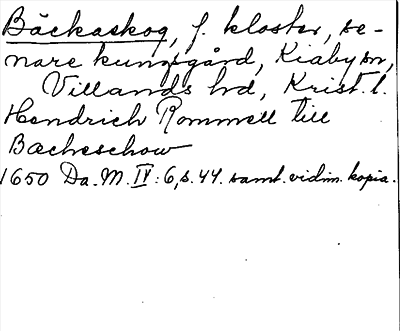 Bäckaskog, f. kloster, se-
nare kungsgård, Kiaby sn,
Villands hd, Krist. l.
Hendrich Rommell till
Bæcheschow
1650 Da. M. IV: 6, s. 44. samt. vidim. kopia.